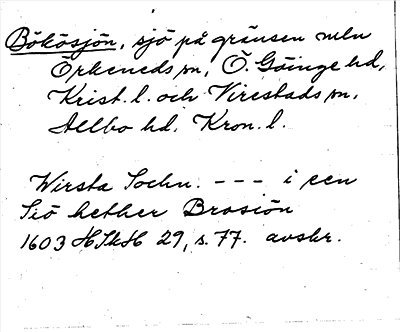 Bökösjön, sjö på gränsen mln
Örkeneds sn, Ö. Göinge hd,
Krist. l. och Virestads sn,
Allbo hd. Kron. l.
Wirsta Sochn. --- i een
Siö hether Brosiön
1603 HSkH 29, s. 77. avskr.